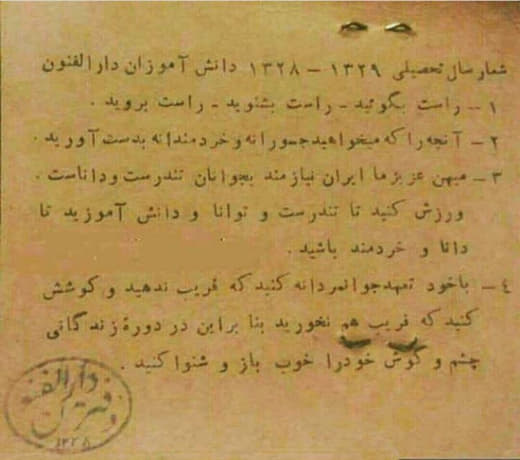 شعار سال تحصیلی ۱۳۲۹ – ۱۳۲۸ دانش آموزان دارالفنون
۱ – راست بگوئید – راست بشنوید – راست بروید .
۲ – آنچه را که میخواهید جسورانه و خردمندانه بدست آورید .
۳ – میهن عزیز ما ایران نیازمند بجوانان تندرست و داناست .
ورزش کنید تا تندرست و توانا و دانش آموزید تا
دانا و خردمند باشید .
٤ – باخود تعهد جوانمردانه کنید که فریب ندهید و کوشش
کنید که فریب هم نخورید بنا براین در دورهٔ زندگانی
چشم و گوش خودرا خوب باز و شنوا کنید .
دارالفنون
دفتر
۱۳۲۸